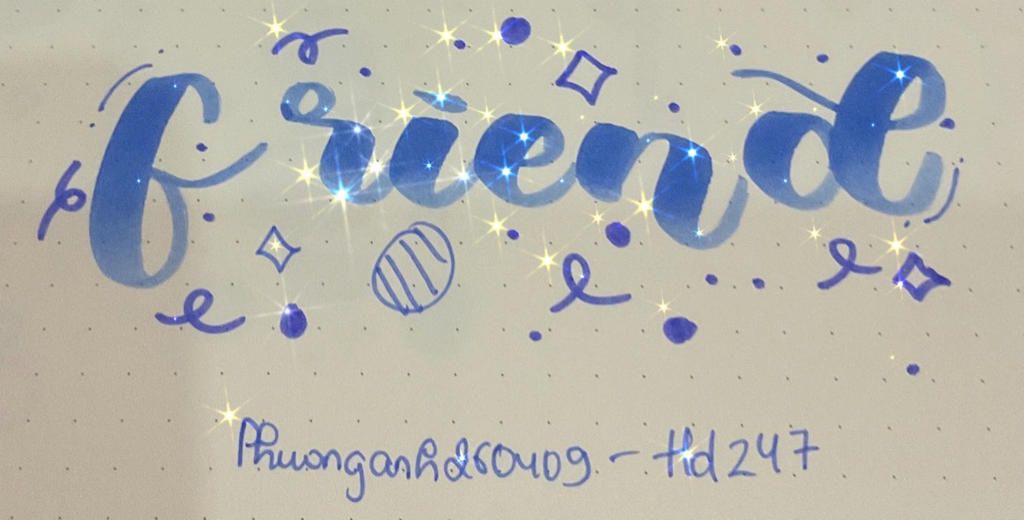 friend
Phuonganhd260409 - Hd247